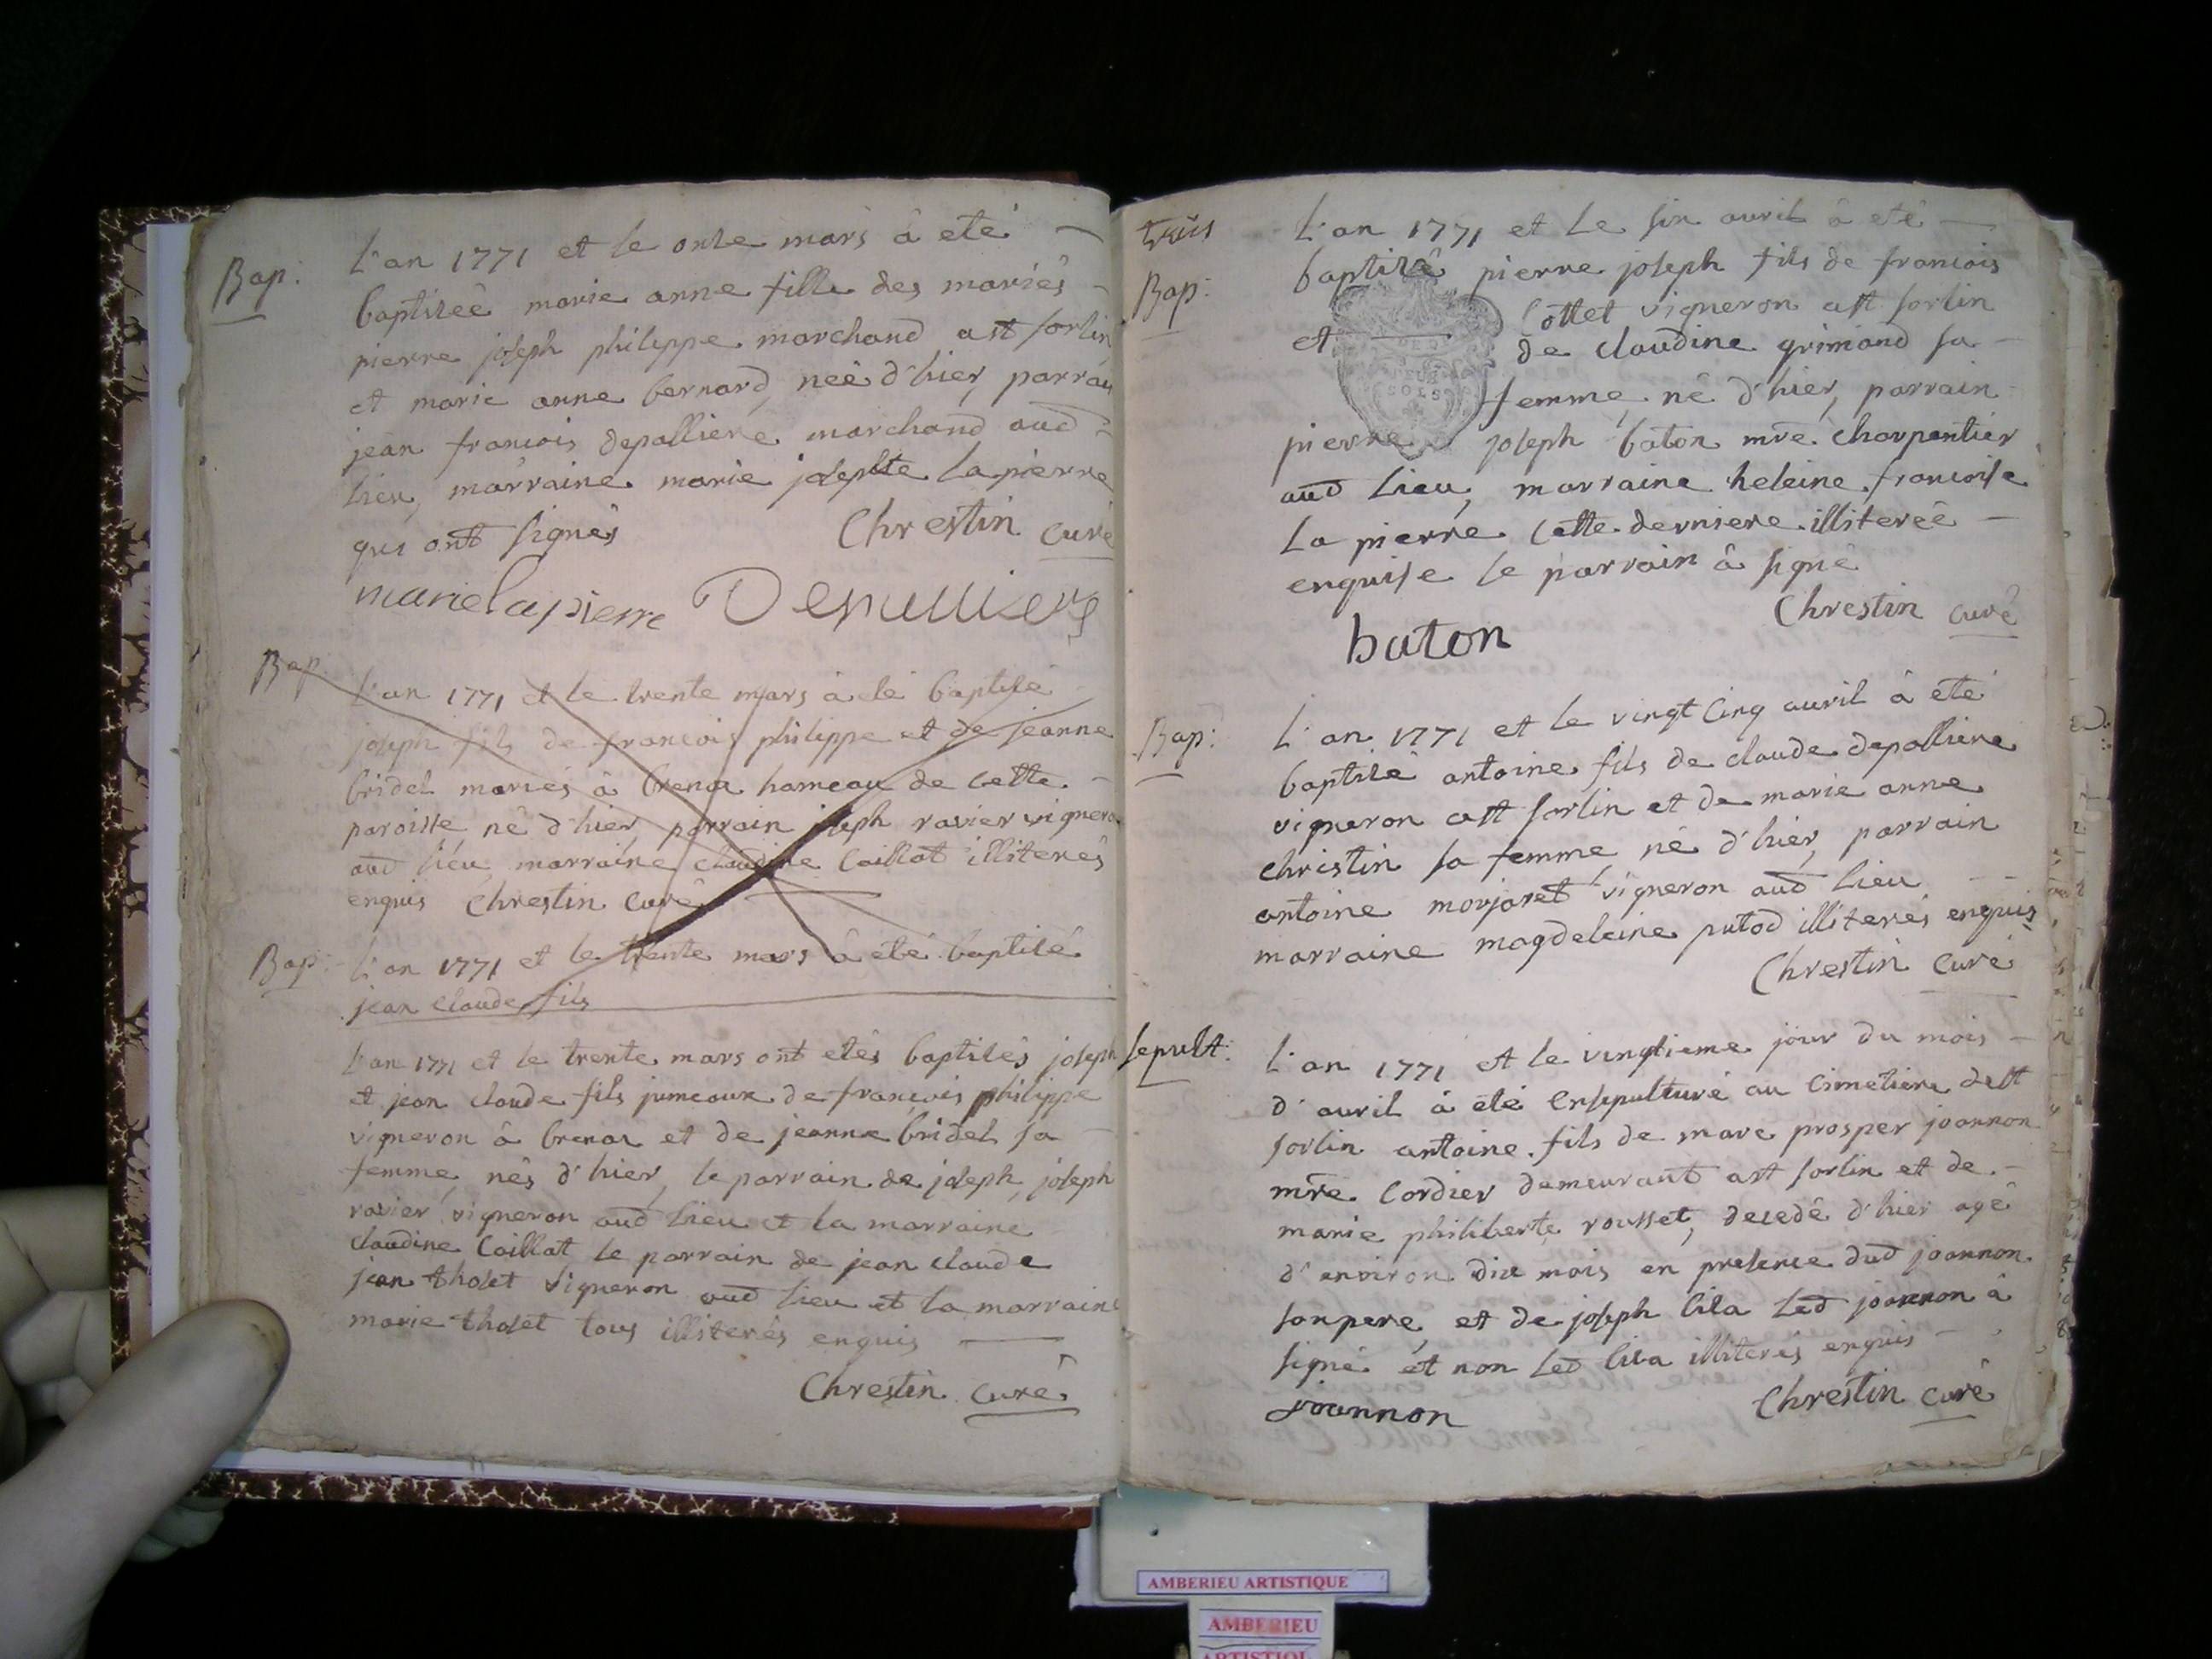 Bap:
L'an 1771 et le onze mars à eté
baptizeê marie anne fille des mariés
pierre joseph philippe marchand a st sorlin
et marie anne bernard, neê d'hier, parrain
jean francois depalliere marchand aud
lieu, marraine marie josephte lapierre
qui ont signés Chrestin curé
marie lapierre Depalliere
Bap
L'an 1771 et le trente mars à eté baptisé
joseph fils de francois philippe et de jeanne
bridel mariés à brenaz hameau de cette
paroisse né d'hier, parrain joseph ravier vigneron
aud lieu, marraine claudine Caillat illiterés
enquis Chrestin curé
Bap:
L'an 1771 et le trente mars à eté baptisé
jean claude fils
L'an 1771 et le trente mars ont etés baptisés joseph
et jean claude fils jumeaux de francois philippe
vigneron à brenaz et de jeanne bridel sa
femme, nés d'hier, le parrain de joseph, joseph
ravier vigneron aud lieu et la marraine
claudine Caillat le parrain de jean claude
jean tholet vigneron aud lieu et la marraine
marie tholet tous illiterés enquis
Chrestin curé
trois
Bap:
L'an 1771 et le six avril à eté
baptizé pierre joseph fils de francois
Cottet vigneron a st sorlin
et de claudine grimand sa
femme, né d'hier, parrain
SOLS
pierre joseph baton mre charpentier
aud lieu, marraine heleine francoise
La pierre cette derniere illitereê
enquise le parrain à signé
Chrestin curé
baton
Bap:
L'an 1771 et le vingt cinq avril à eté
baptisé antoine fils de claude depalliere
vigneron a st sorlin et de marie anne
christin sa femme, né d'hier, parrain
antoine morjaret vigneron aud lieu
marraine magdeleine putod illiterés enquis
Chrestin curé
sepult:
L'an 1771 et le vingtieme jour du mois
d'avril à eté ensepulturé au cimetiere de st
sorlin antoine fils de marc prosper joannon
mre Cordier demeurant a st sorlin et de
marie philiberte rousset, decedé d'hier agé
d'environ dix mois en presence dud joannon
son pere, et de joseph lila led joannon à
signé et non led lila illiterés enquis
Chrestin curé
joannon
AMBERIEU ARTISTIQUE
AMBERIEU
ARTISTIQ